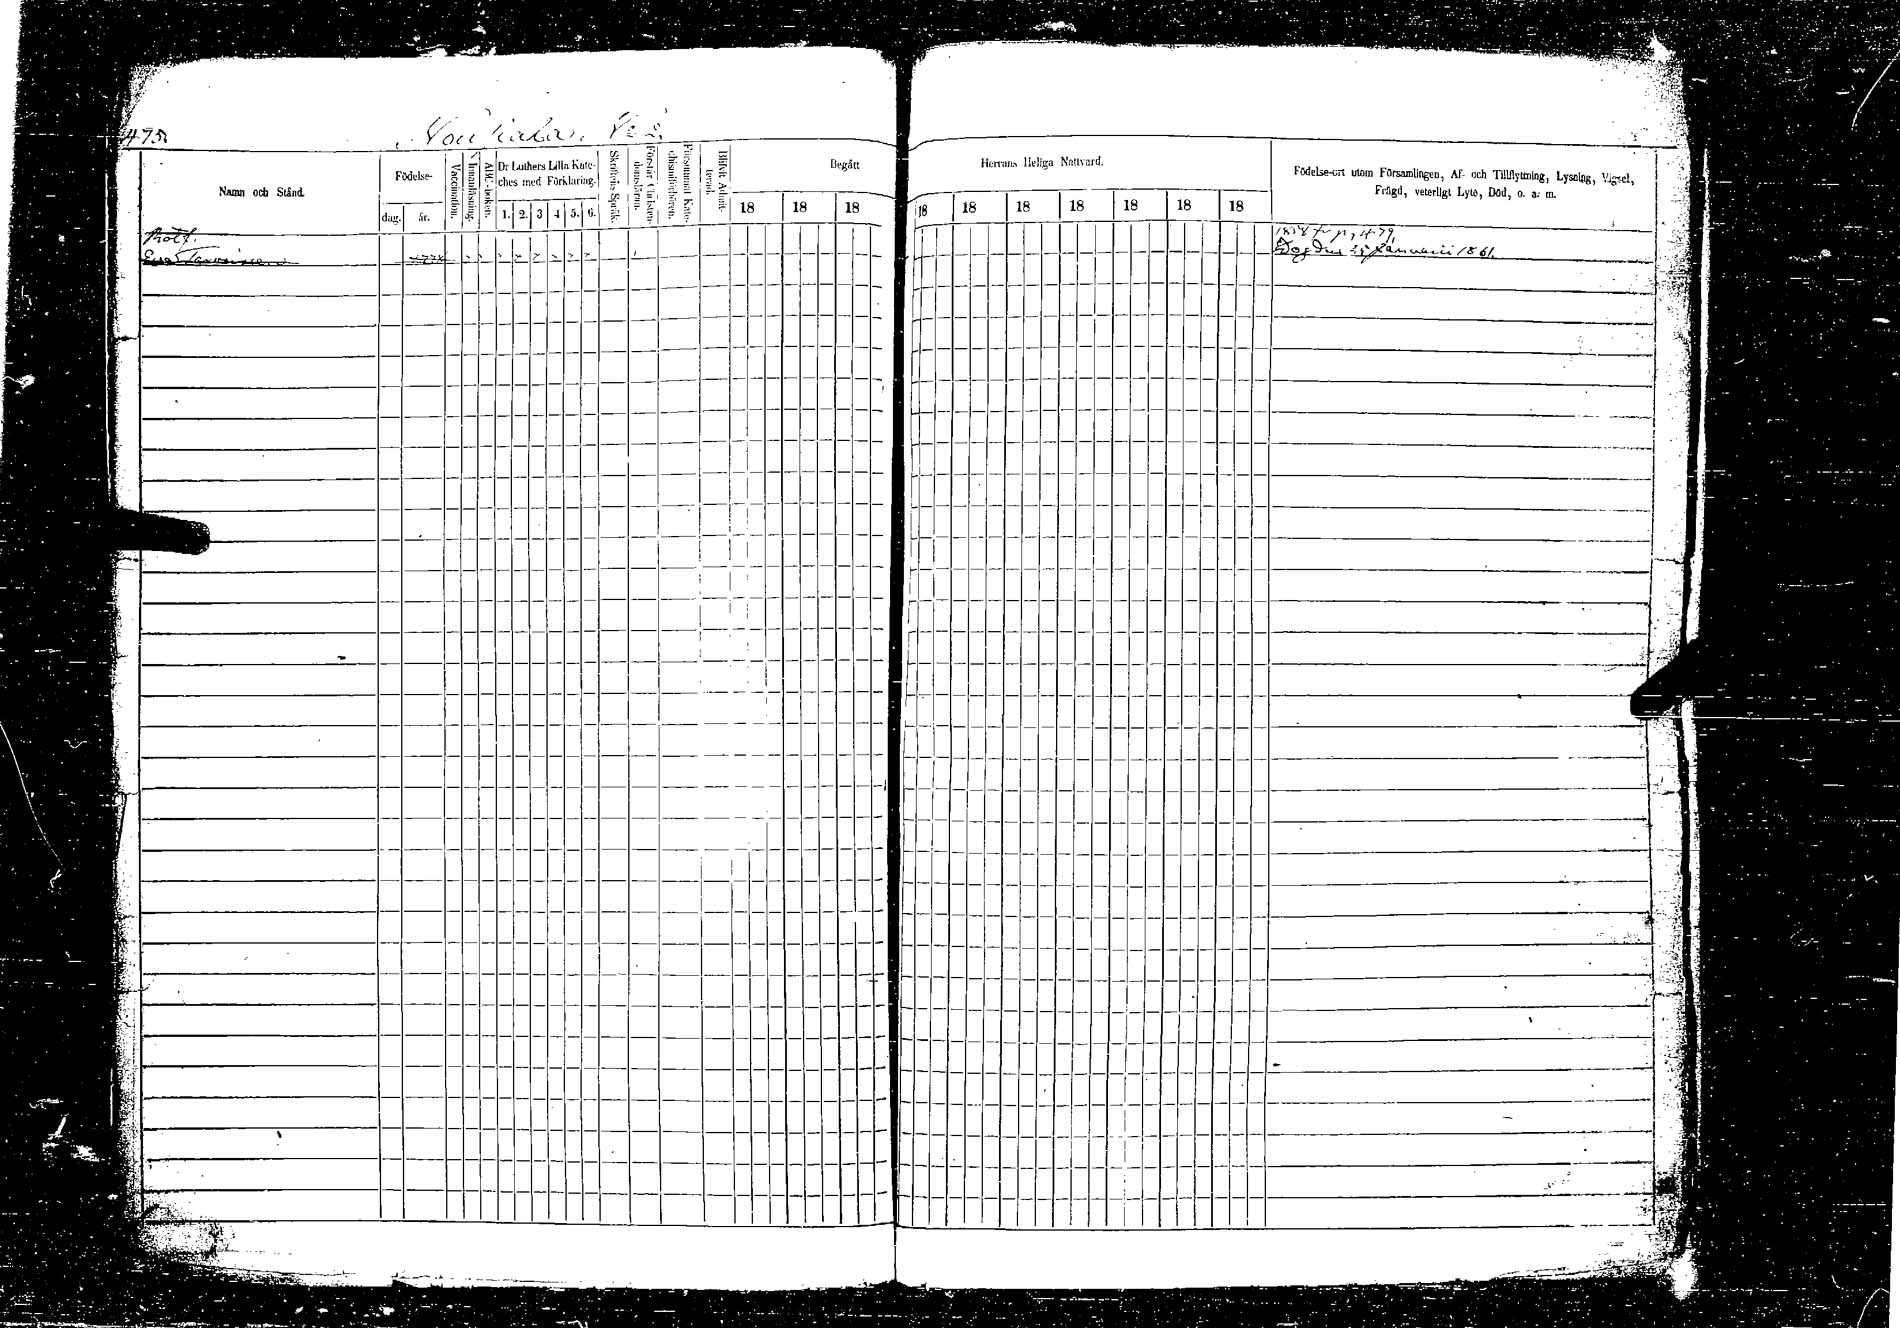 475.
Namn och Stånd.
Födelse-
dag.
år.
Vaccination.
Innanläsning.
ABC-boken.
Dr Luthers Lilla Kate-
ches med Förklaring.
1. 2. 3 4 5. 6.
Skriftens Språk.
Förstår Christen-
domsläran.
Försummat Kate-
chismiförhören.
Blifvit Admit-
terad.
Begått
18 18 18
Herrans Heliga Nattvard.
18 18 18 18 18 18 18
Födelse-ort utom Församlingen, Af- och Tillflyttning, Lysning, Vigsel,
Frägd, veterligt Lyte, Död, o. a. m.
1858 fr p, 479
Eva
Dog den 25 Januarii 1861.